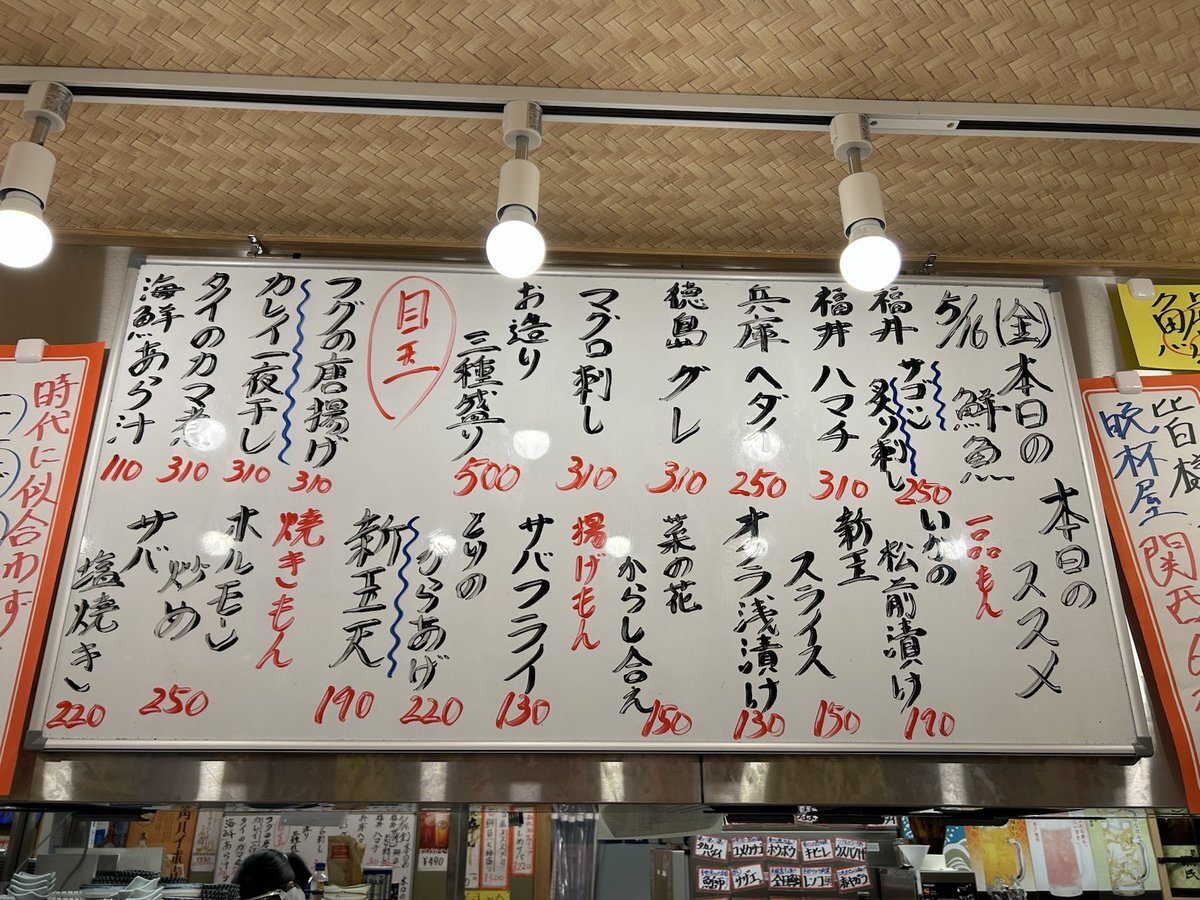 5/16(金)
本日の
鮮魚
福井 サゴシ
炙り刺し
250
福井 ハマチ
310
兵庫 ヘダイ
250
徳島 グレ
310
マグロ刺し
310
お造り
三種盛り
500
目玉
フグの唐揚げ
310
カレイ一夜干し
310
タイのカマ煮
310
海鮮あら汁
110
本日の
ススメ
一品もん
いかの
松前漬け
190
新玉
スライス
150
オクラ浅漬け
130
菜の花
からし合え
150
揚げもん
サバフライ
130
とりの
からあげ
220
新玉天
190
焼きもん
ホルモン
炒め
250
サバ
塩焼き
220
時代に似合わず
皆様
晩杯屋
関西
¥490